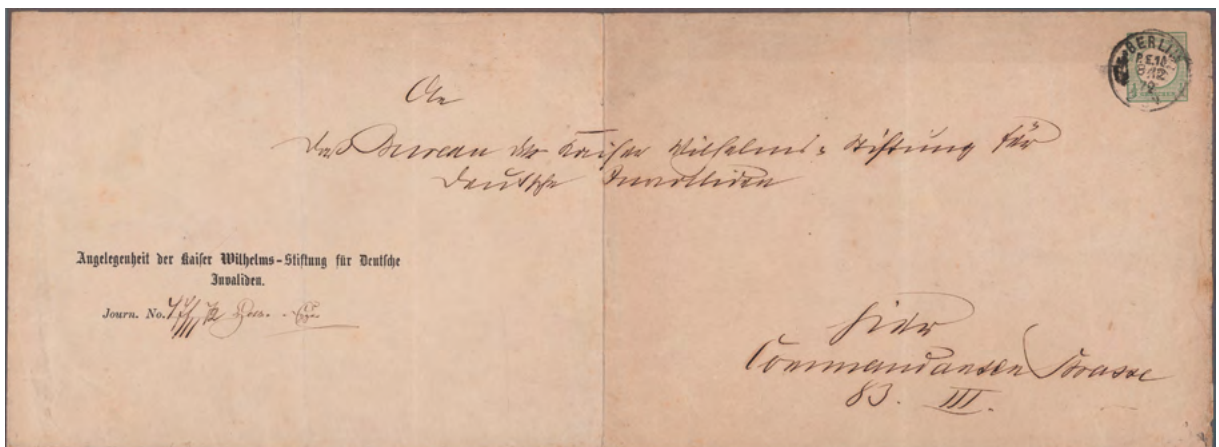 BERLIN
12
72
An
das Bureau der Kaiser Wilhelms-Stiftung für
Deutsche Invaliden
Angelegenheit der Kaiser Wilhelms-Stiftung für Deutsche
Invaliden.
Journ. No.
hier
Commandanten Strasse
83. III.